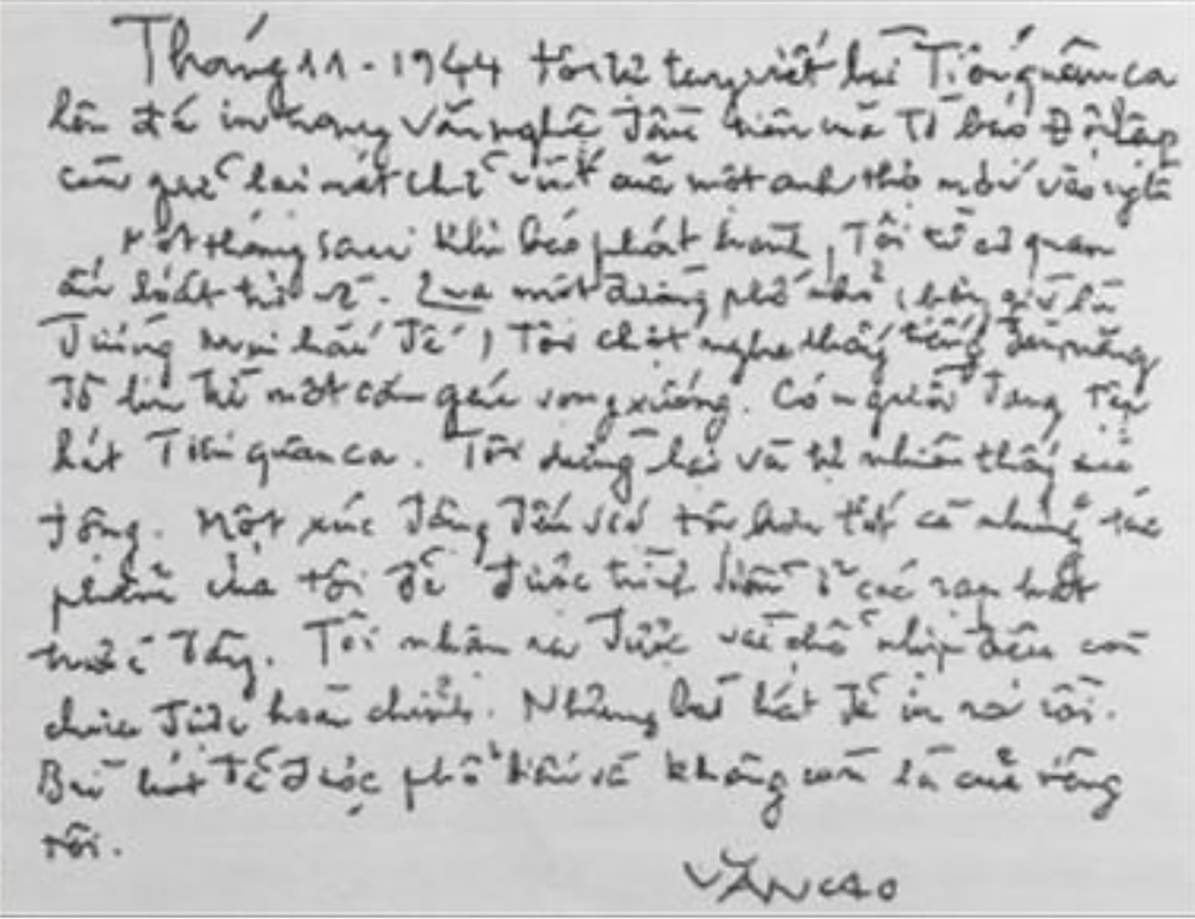 Tháng 11-1944 tôi tự tay viết bài Tiến quân ca
lên đá in trong văn nghệ đầu tiên mà tờ báo Độc lập
còn giữ lại nét chữ viết của một anh thợ mới vào nghề
Một tháng sau khi báo phát hành, Tôi từ cơ quan
ấn loát trở về. Qua một đường phố nhỏ (bây giờ là
đường Mai hắc Đế) Tôi chợt nghe thấy tiếng đàn măng
đô lin từ một căn gác vọng xuống. Có người đang tập
hát Tiến quân ca. Tôi dừng lại và tự nhiên thấy xúc
động. Một xúc động đến với tôi hơn tất cả những tác
phẩm của tôi đã được trình diễn ở các rạp hát
trước đây. Tôi nhận ra được vài chỗ nhịp điệu còn
chưa được hoàn chỉnh. Nhưng bài hát đã in ra rồi.
Bài hát đã được phổ biến và không còn là của riêng
tôi.
VĂN CAO